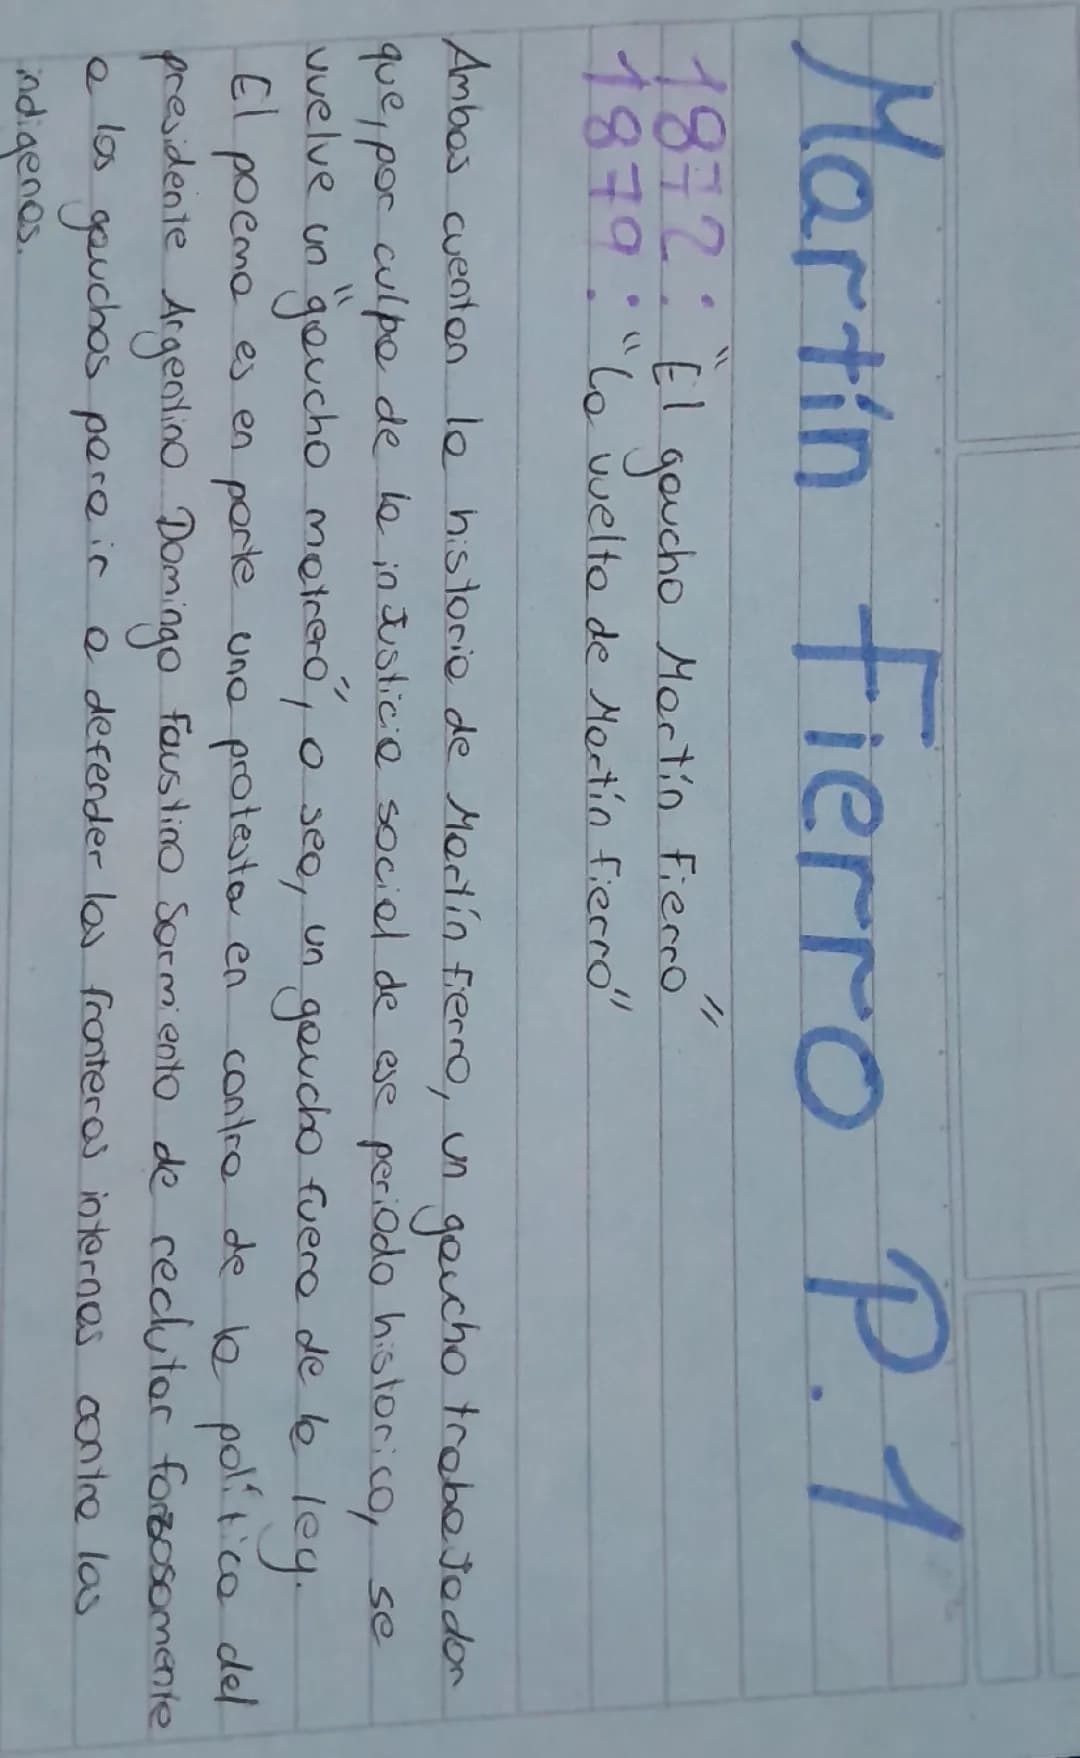 Martín Fierro P.1
1872: "El gaucho Martín Fierro"
1879: "La vuelta de Martín Fierro"
Ambas cuentan la historia de Martín Fierro, un gaucho trabajador
que, por culpa de la injusticia social de ese periodo historico, se
vuelve un "gaucho matrero", o sea, un gaucho fuera de la ley.
El poema es en parte una protesta en contra de la política del
presidente Argentino Domingo Faustino Sarmiento de reclutar forzosamente
a los gauchos para ir a defender las fronteras internas contra las
indigenas.